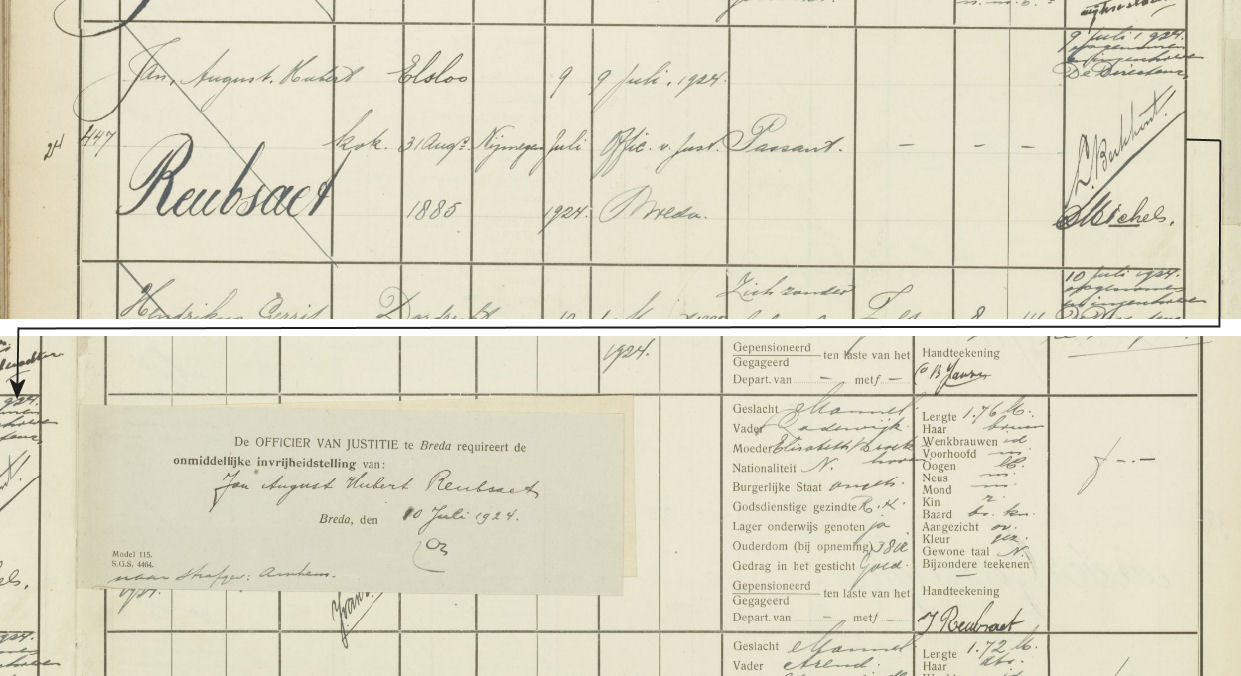 9 Juli 1924.
opgenomen
en ingenheven
De Directeur,
Jan, August, Hubert Elsloo 9 9 Juli, 1924.
24 447 kok. 31 Augs. Nijmegen Juli Offic. v. Just. Passant. - - -
Reubsaet 1885 1924. Breda.
Michels.
10 Juli 1924.
opgenomen
Zich zonder
Hendrikus Gerrit Dordrecht 10
1924.
Gepensioneerd
Gegageerd ten laste van het
Depart. van — met f —
Handteekening
De OFFICIER VAN JUSTITIE te Breda requireert de
onmiddellijke invrijheidstelling van:
Jan August Hubert Reubsaet
Breda, den 10 Juli 1924.
Model 115.
S.G.S. 4464.
naar Strafgev: Arnhem.
Geslacht Mannel.
Vader Lodewijk
Moeder Elisabeth
Nationaliteit N.
Burgerlijke Staat ongeh.
Godsdienstige gezindte R.K.
Lager onderwijs genoten ja
Ouderdom (bij opneming) 38
Gedrag in het gesticht Goed.
Gepensioneerd
Gegageerd ten laste van het
Depart. van — met f —
Lengte 1.76 M.
Haar bruin
Wenkbrauwen id
Voorhoofd m.
Oogen bl.
Neus m.
Mond m.
Kin r.
Baard br. kn.
Aangezicht ov.
Kleur gez.
Gewone taal N.
Bijzondere teekenen
—
Handteekening
J Reubsaet
Geslacht Mannel.
Vader Arend.
Lengte 1.72 M.
Haar